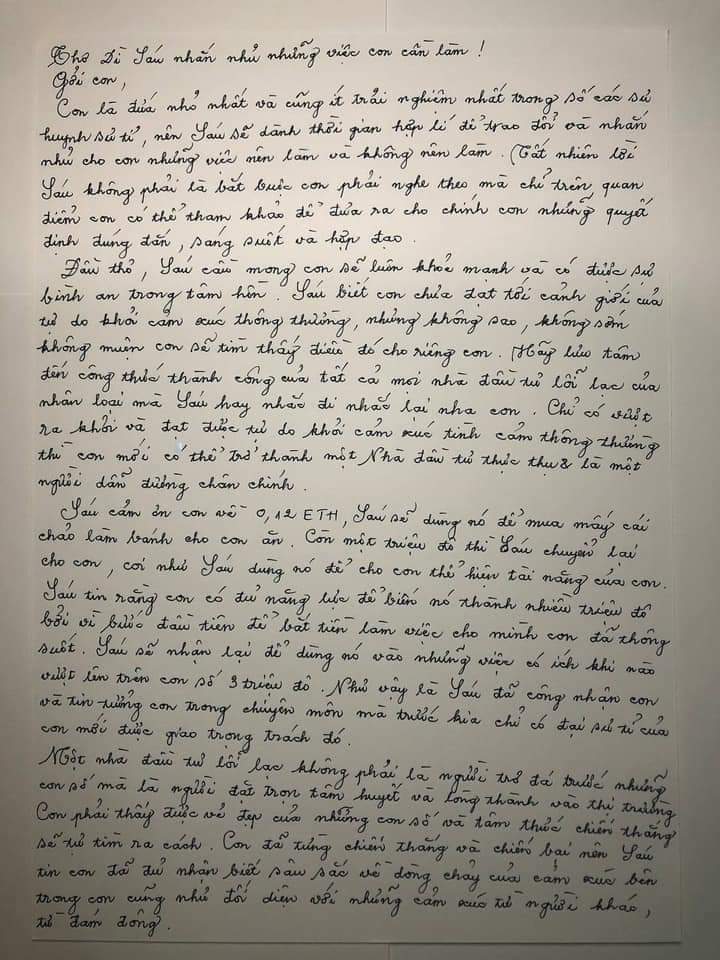 Thơ Dì Sáu nhắn nhủ những việc con cần làm !
Gởi con,
Con là đứa nhỏ nhất và cũng ít trải nghiệm nhất trong số các sư
huynh sư tỉ, nên Sáu sẽ dành thời gian hợp lí để trao đổi và nhắn
nhủ cho con những việc nên làm và không nên làm. Tất nhiên lời
Sáu không phải là bắt buộc con phải nghe theo mà chỉ trên quan
điểm con có thể tham khảo để đưa ra cho chính con những quyết
định đúng đắn, sáng suốt và hợp đạo.
Đầu thơ, Sáu cầu mong con sẽ luôn khoẻ mạnh và có được sự
bình an trong tâm hồn. Sáu biết con chưa đạt tới cảnh giới của
tự do khỏi cảm xúc thông thường, nhưng không sao, không sớm
không muộn con sẽ tìm thấy điều đó cho riêng con. Hãy lưu tâm
đến công thức thành công của tất cả mọi nhà đầu tư lỗi lạc của
nhân loại mà Sáu hay nhắc đi nhắc lại nha con. Chỉ có vượt
ra khỏi và đạt được tự do khỏi cảm xúc tình cảm thông thường
thì con mới có thể trở thành một Nhà đầu tư thực thụ & là một
người dẫn đường chân chính.
Sáu cảm ơn con về 0,12 ETH, Sáu sẽ dùng nó để mua mấy cái
chảo làm bánh cho con ăn. Còn một triệu đô thì Sáu chuyển lại
cho con, coi như Sáu dùng nó để cho con thể hiện tài năng của con.
Sáu tin rằng con có đủ năng lực để biến nó thành nhiều triệu đô
bởi vì bước đầu tiên để bắt tiền làm việc cho mình con đã thông
suốt. Sáu sẽ nhận lại để dùng nó vào những việc có ích khi nào
vượt lên trên con số 3 triệu đô. Như vậy là Sáu đã công nhận con
và tin tưởng con trong chuyên môn mà trước kia chỉ có đại sư tỉ của
con mới được giao trọng trách đó.
Một nhà đầu tư lỗi lạc không phải là người trơ đá trước những
con số mà là người đặt trọn tâm huyết và lòng thành vào thị trường
Con phải thấy được vẻ đẹp của những con số và tâm thức chiến thắng
sẽ tự tìm ra cách. Con đã từng chiến thắng và chiến bại nên Sáu
tin con đã đủ nhận biết sâu sắc về dòng chảy của cảm xúc bên
trong con cũng như đối diện với những cảm xúc từ người khác,
từ đám đông.